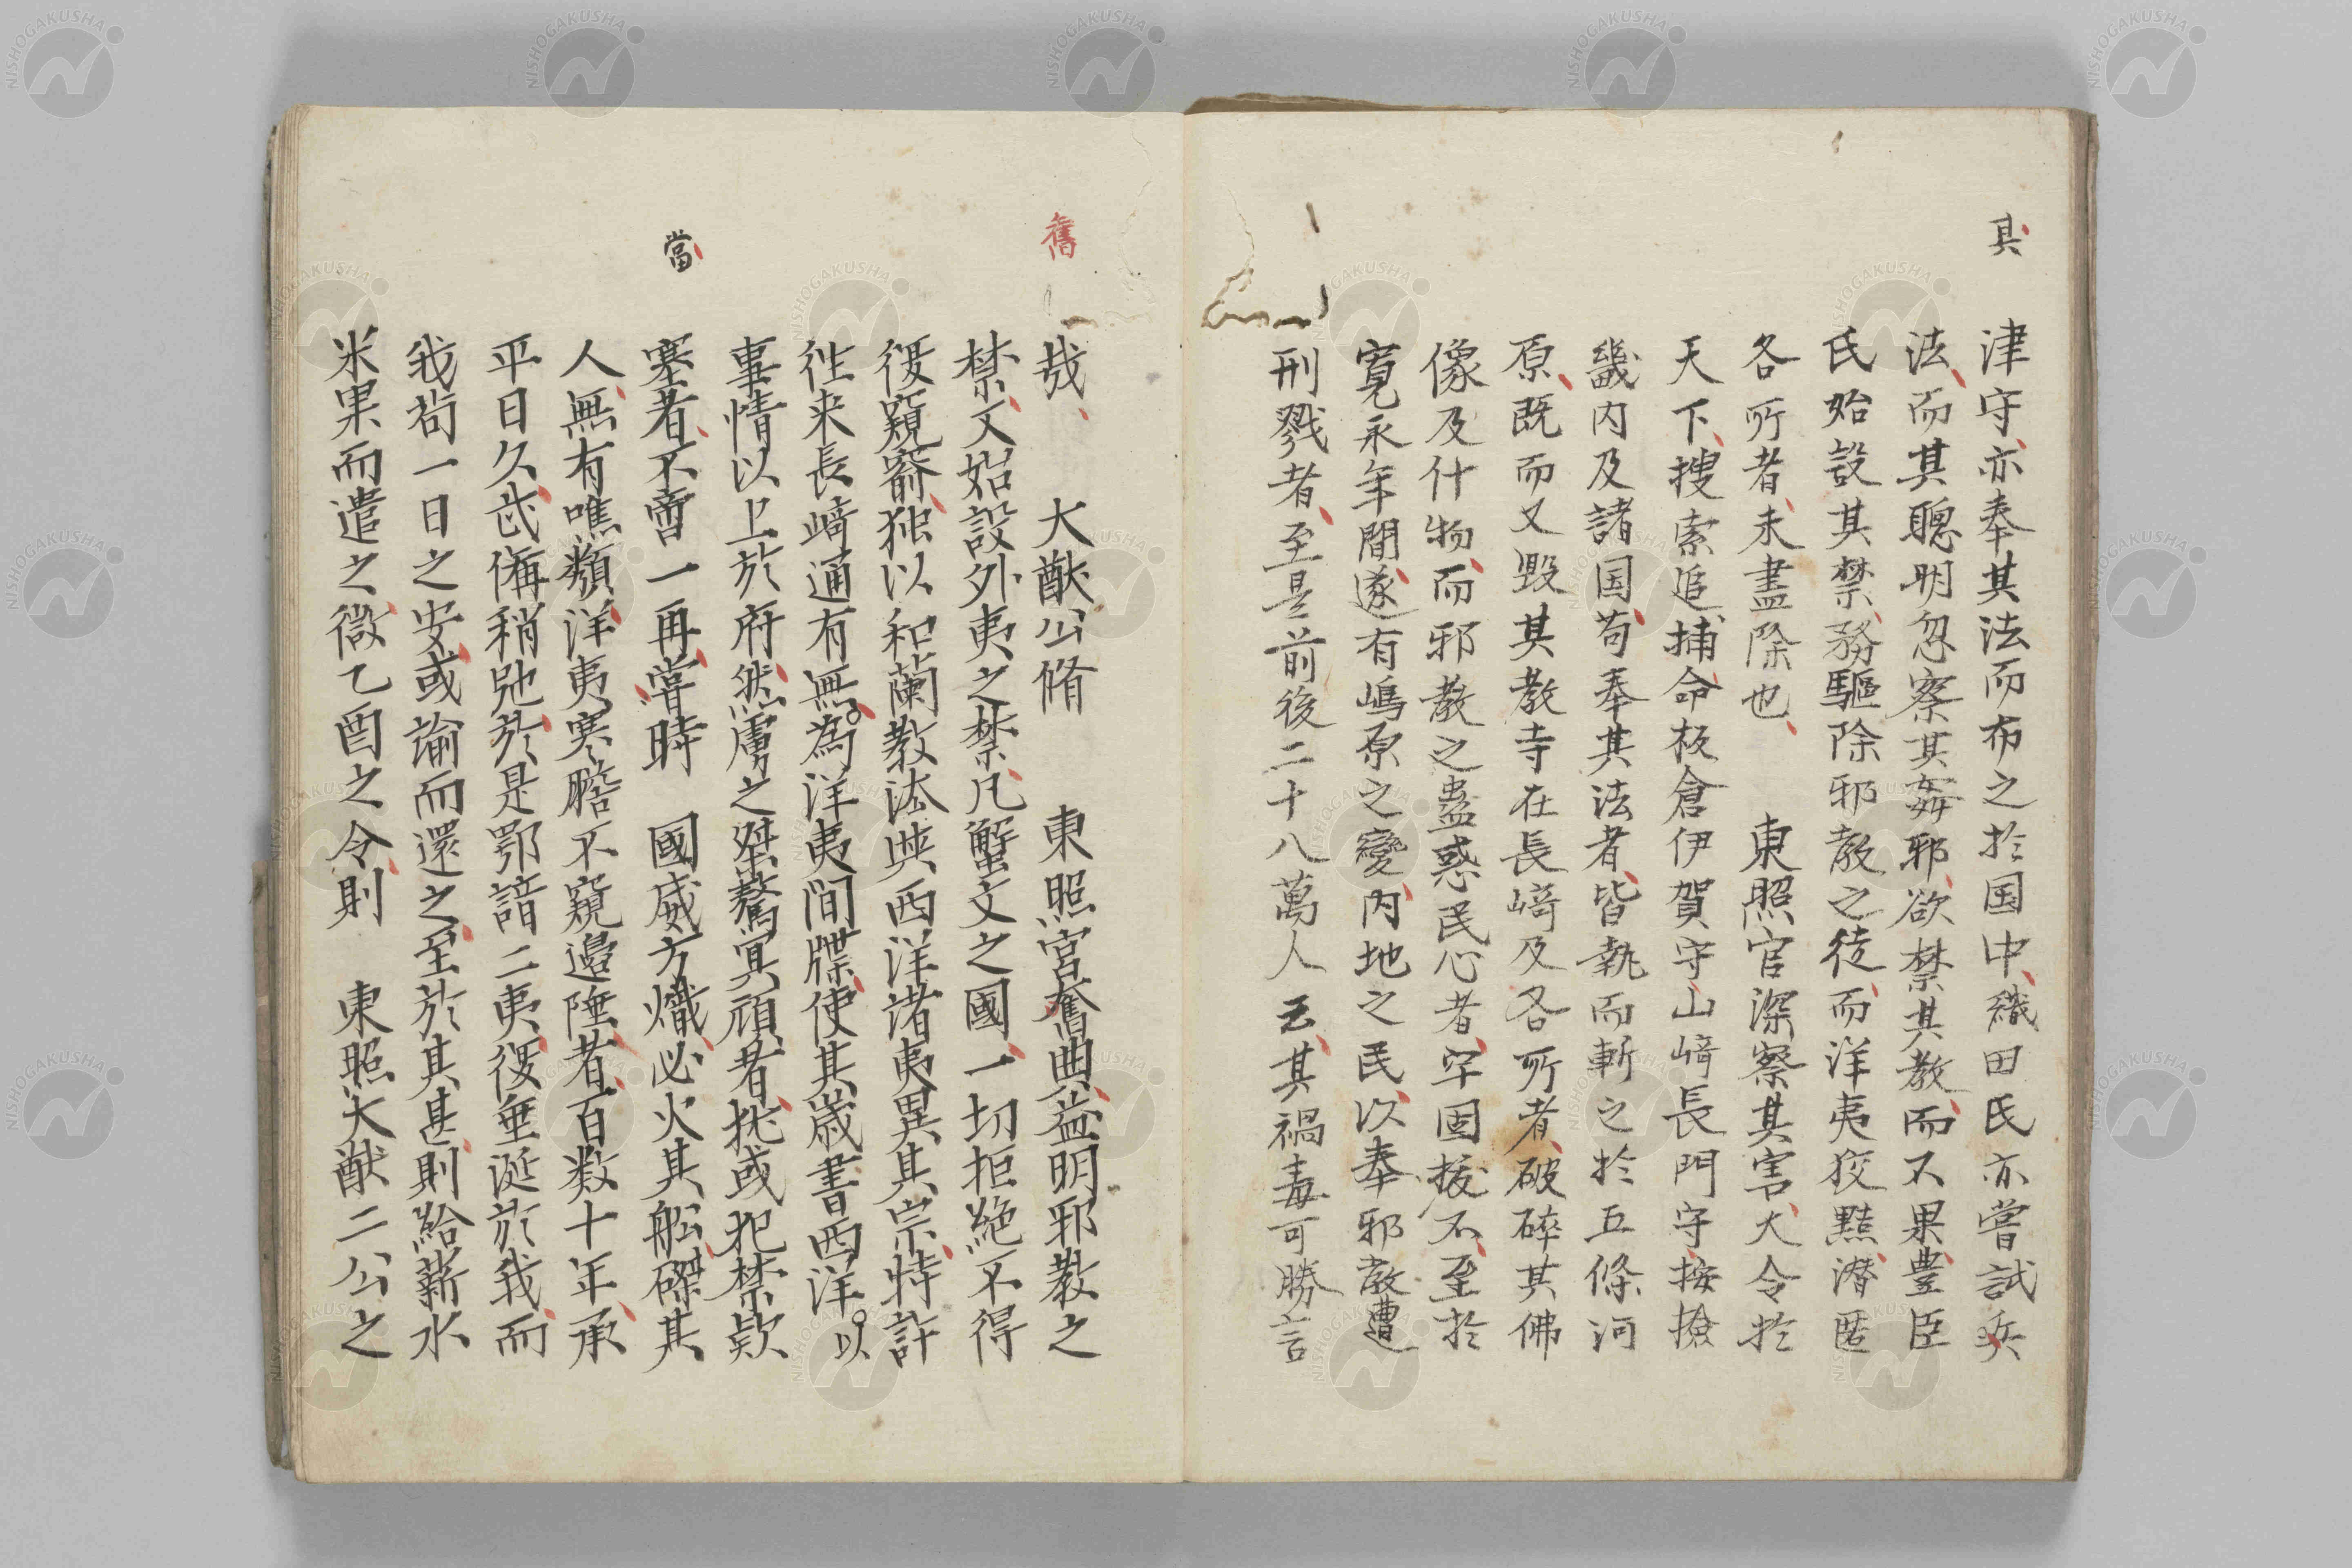 其
津守亦奉其法而布之於国中織田氏亦嘗試兵
法而其聰明忽察其姦邪欲禁其教而不果豊臣
氏始設其禁務驅除邪教之徒而洋夷狡黠潜匿
各所者未盡除也　東照宮深察其害大令於
天下搜索追捕命板倉伊賀守山﨑長門守按撿
畿内及諸国苟奉其法者皆執而斬之於五條河
原既而又毀其教寺在長﨑及各所者破碎其佛
像及什物而邪教之蠱惑民心者牢固拔不至於
寛永年間遂有嶋原之變内地之民以奉邪教遭
刑戮者至是前後二十八萬人云其禍毒可勝言
舊
當
哉　大猷公脩　東照宮舊典益明邪教之
禁又始設外夷之禁凡蟹文之國一切拒絶不得
役窺窬独以和蘭教法與西洋诸夷異其宗特許
徃来長﨑通有無為洋夷間牒使其歳書西洋以
事情以上於府然虜之桀驁冥頑者挑或犯禁款
塞者不啻一再嘗時　國威方熾必火其舩磔其
人無有噍類洋夷寒膽不窺邉陲者百数十年承
平日久武備稍弛於是鄂諳二夷役垂涎於我而
我苟一日之安或諭而還之至於其甚則給薪水
米果而遣之微乙酉之令則　東照大猷二公之
NISHOGAKUSHA